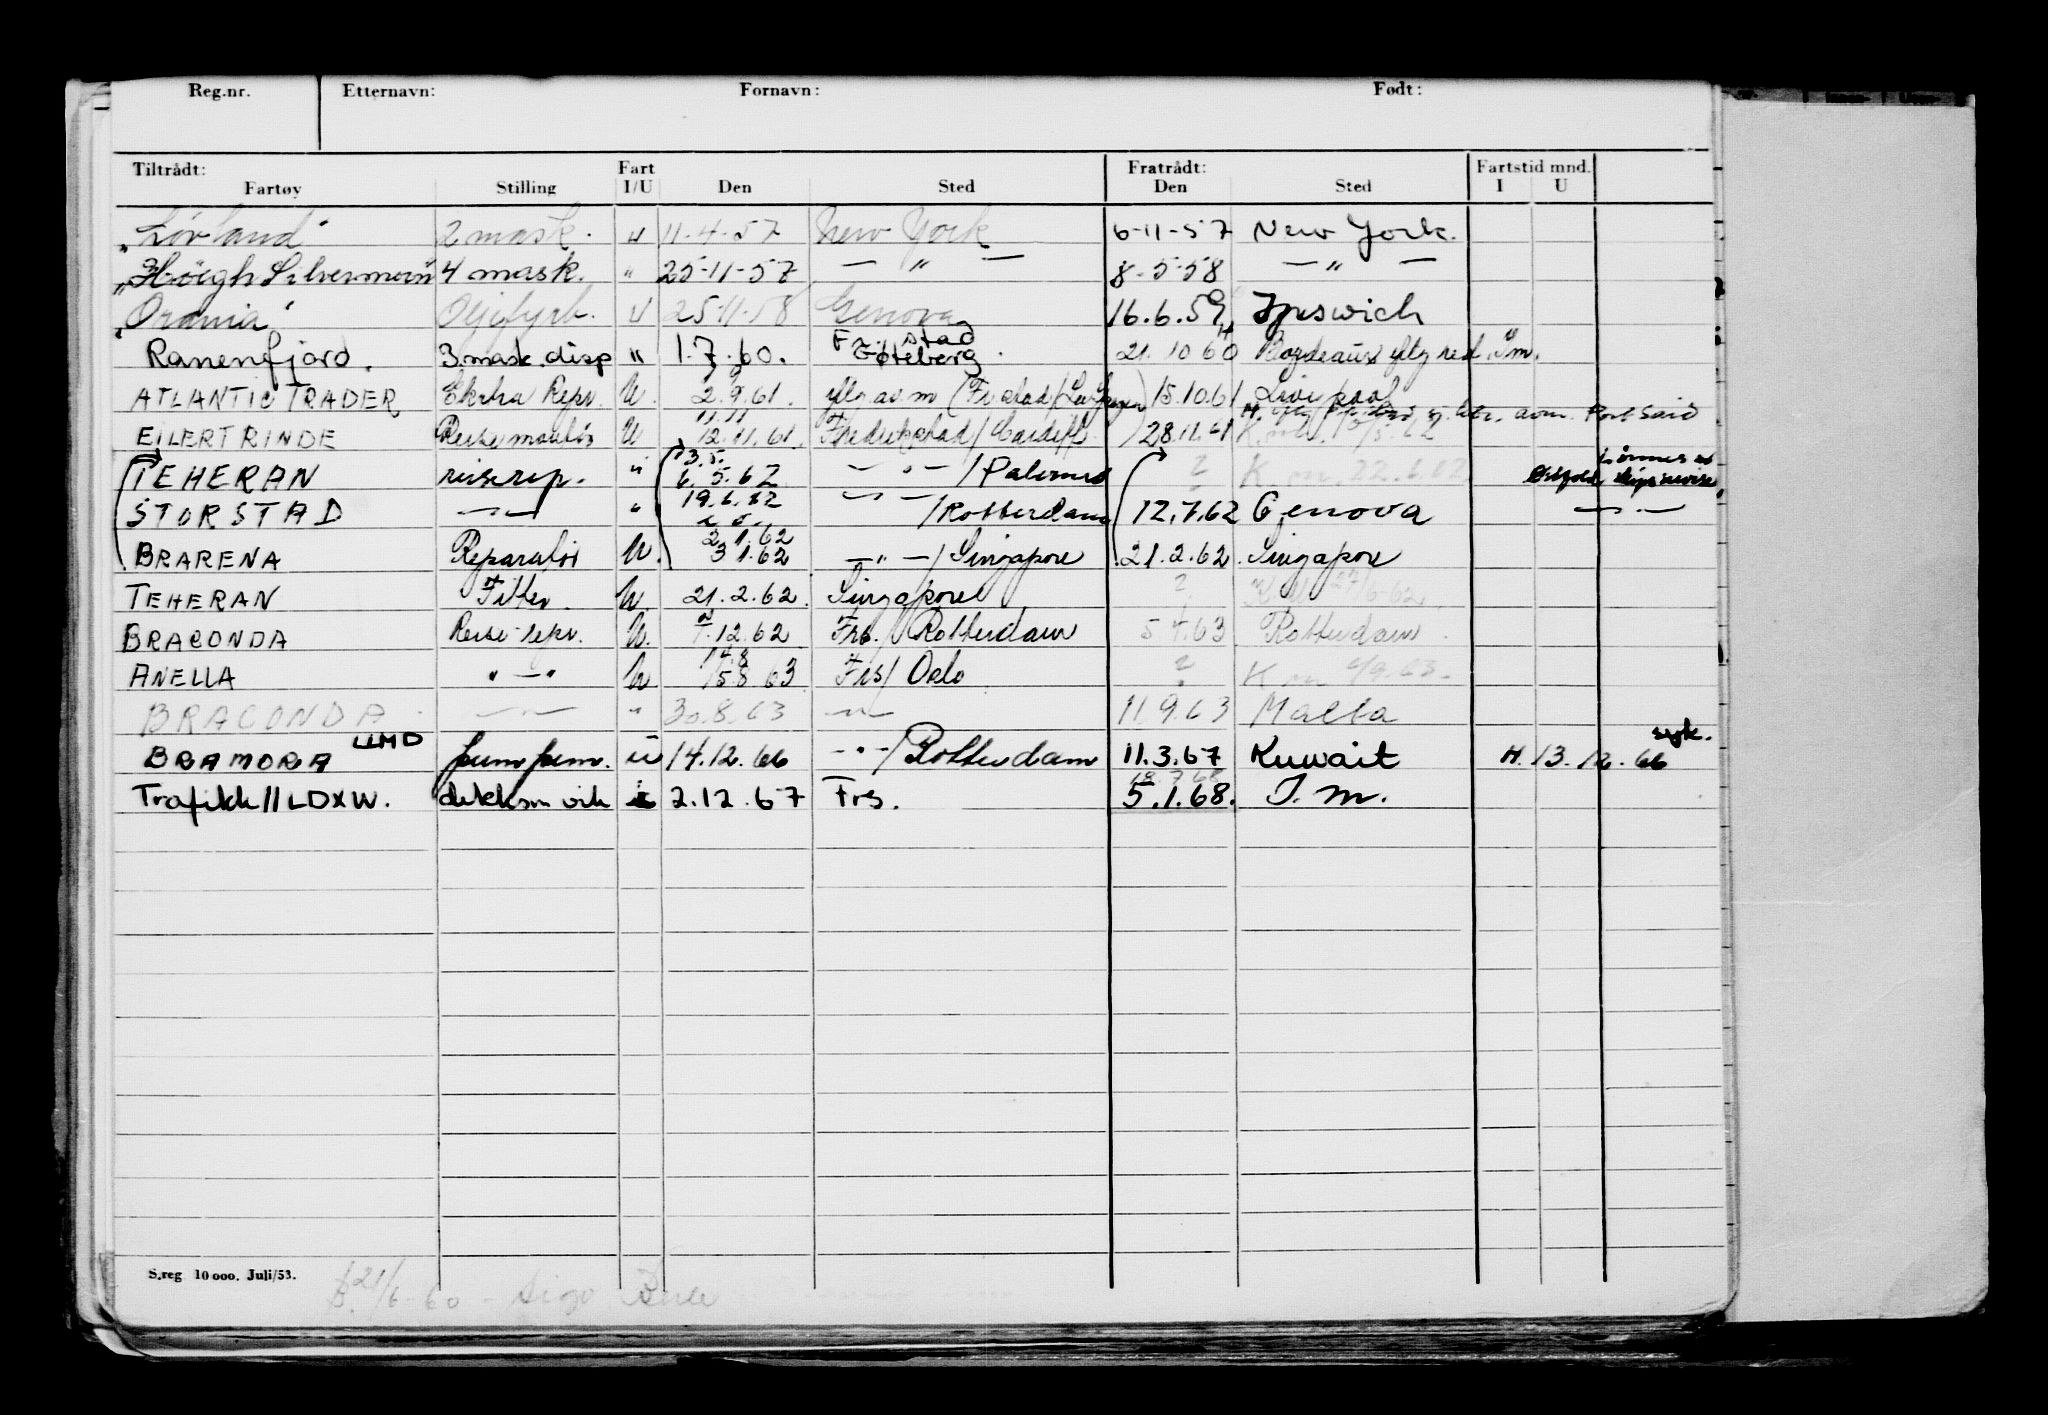 Reg.nr. Etternavn: Fornavn: Født:
Tiltrådt: Fart Fratrådt: Fartstid mnd.
Fartøy Stilling I/U Den Sted Den Sted I U
"Lövland" 2 mask. u 11-4-57 New York 6-11-57 New York.
"Höegh Silvermoon 4 mask. " 25-11-57 — " — 8-5-58 — " —
"Orania" Oljefyrb. u 25-11-58 Genova 16.6.59 Ipswich
Fr. stad
Ranenfjord. 3.mask.disp " 1.7.60. Göteberg. 21.10 60 Bordeaux
ATLANTIC TRADER Ekstra Repr. U. 2.9.61. 15.10.61 Liverpool
Port Said
EILERT RINDE Reisemontör U 12.11.61. Fredrikstad/Cardiff 28.11.61
3.5.
TEHERAN reiserep. " 6.5.62 — " — /Palermo ? K. m. 22.6.62
19.6.62
STORSTAD — " — " — " — /Rotterdam 12.7.62 Genova — " —
2.1.62
BRARENA Reparatör U. 3 1.62 — " — /Singapore 21.2.62 Singapore
TEHERAN Fitter U. 21.2.62. Singapore ?
BRACONDA Reise-repr. U. 1.12.62 Frs. / Rotterdam 5.4.63 Rotterdam
14.8
ANELLA " — " U 15.8.63 Frs/ Oslo ? K m 9.63.
BRACONDA — " — " 30.8.63 — " — 11.9.63 Malta
LLMD syk.
BRAMORA pumpem. u 14.12.66 — " — /Rotterdam 11.3.67 Kuwait H. 13.12.66
18.7.68
Trafikk//LDXW. dekksm vik i 2.12.67 Frs. 5.1.68. I.m.
S.reg 10 000. Juli/53.
21/6-60